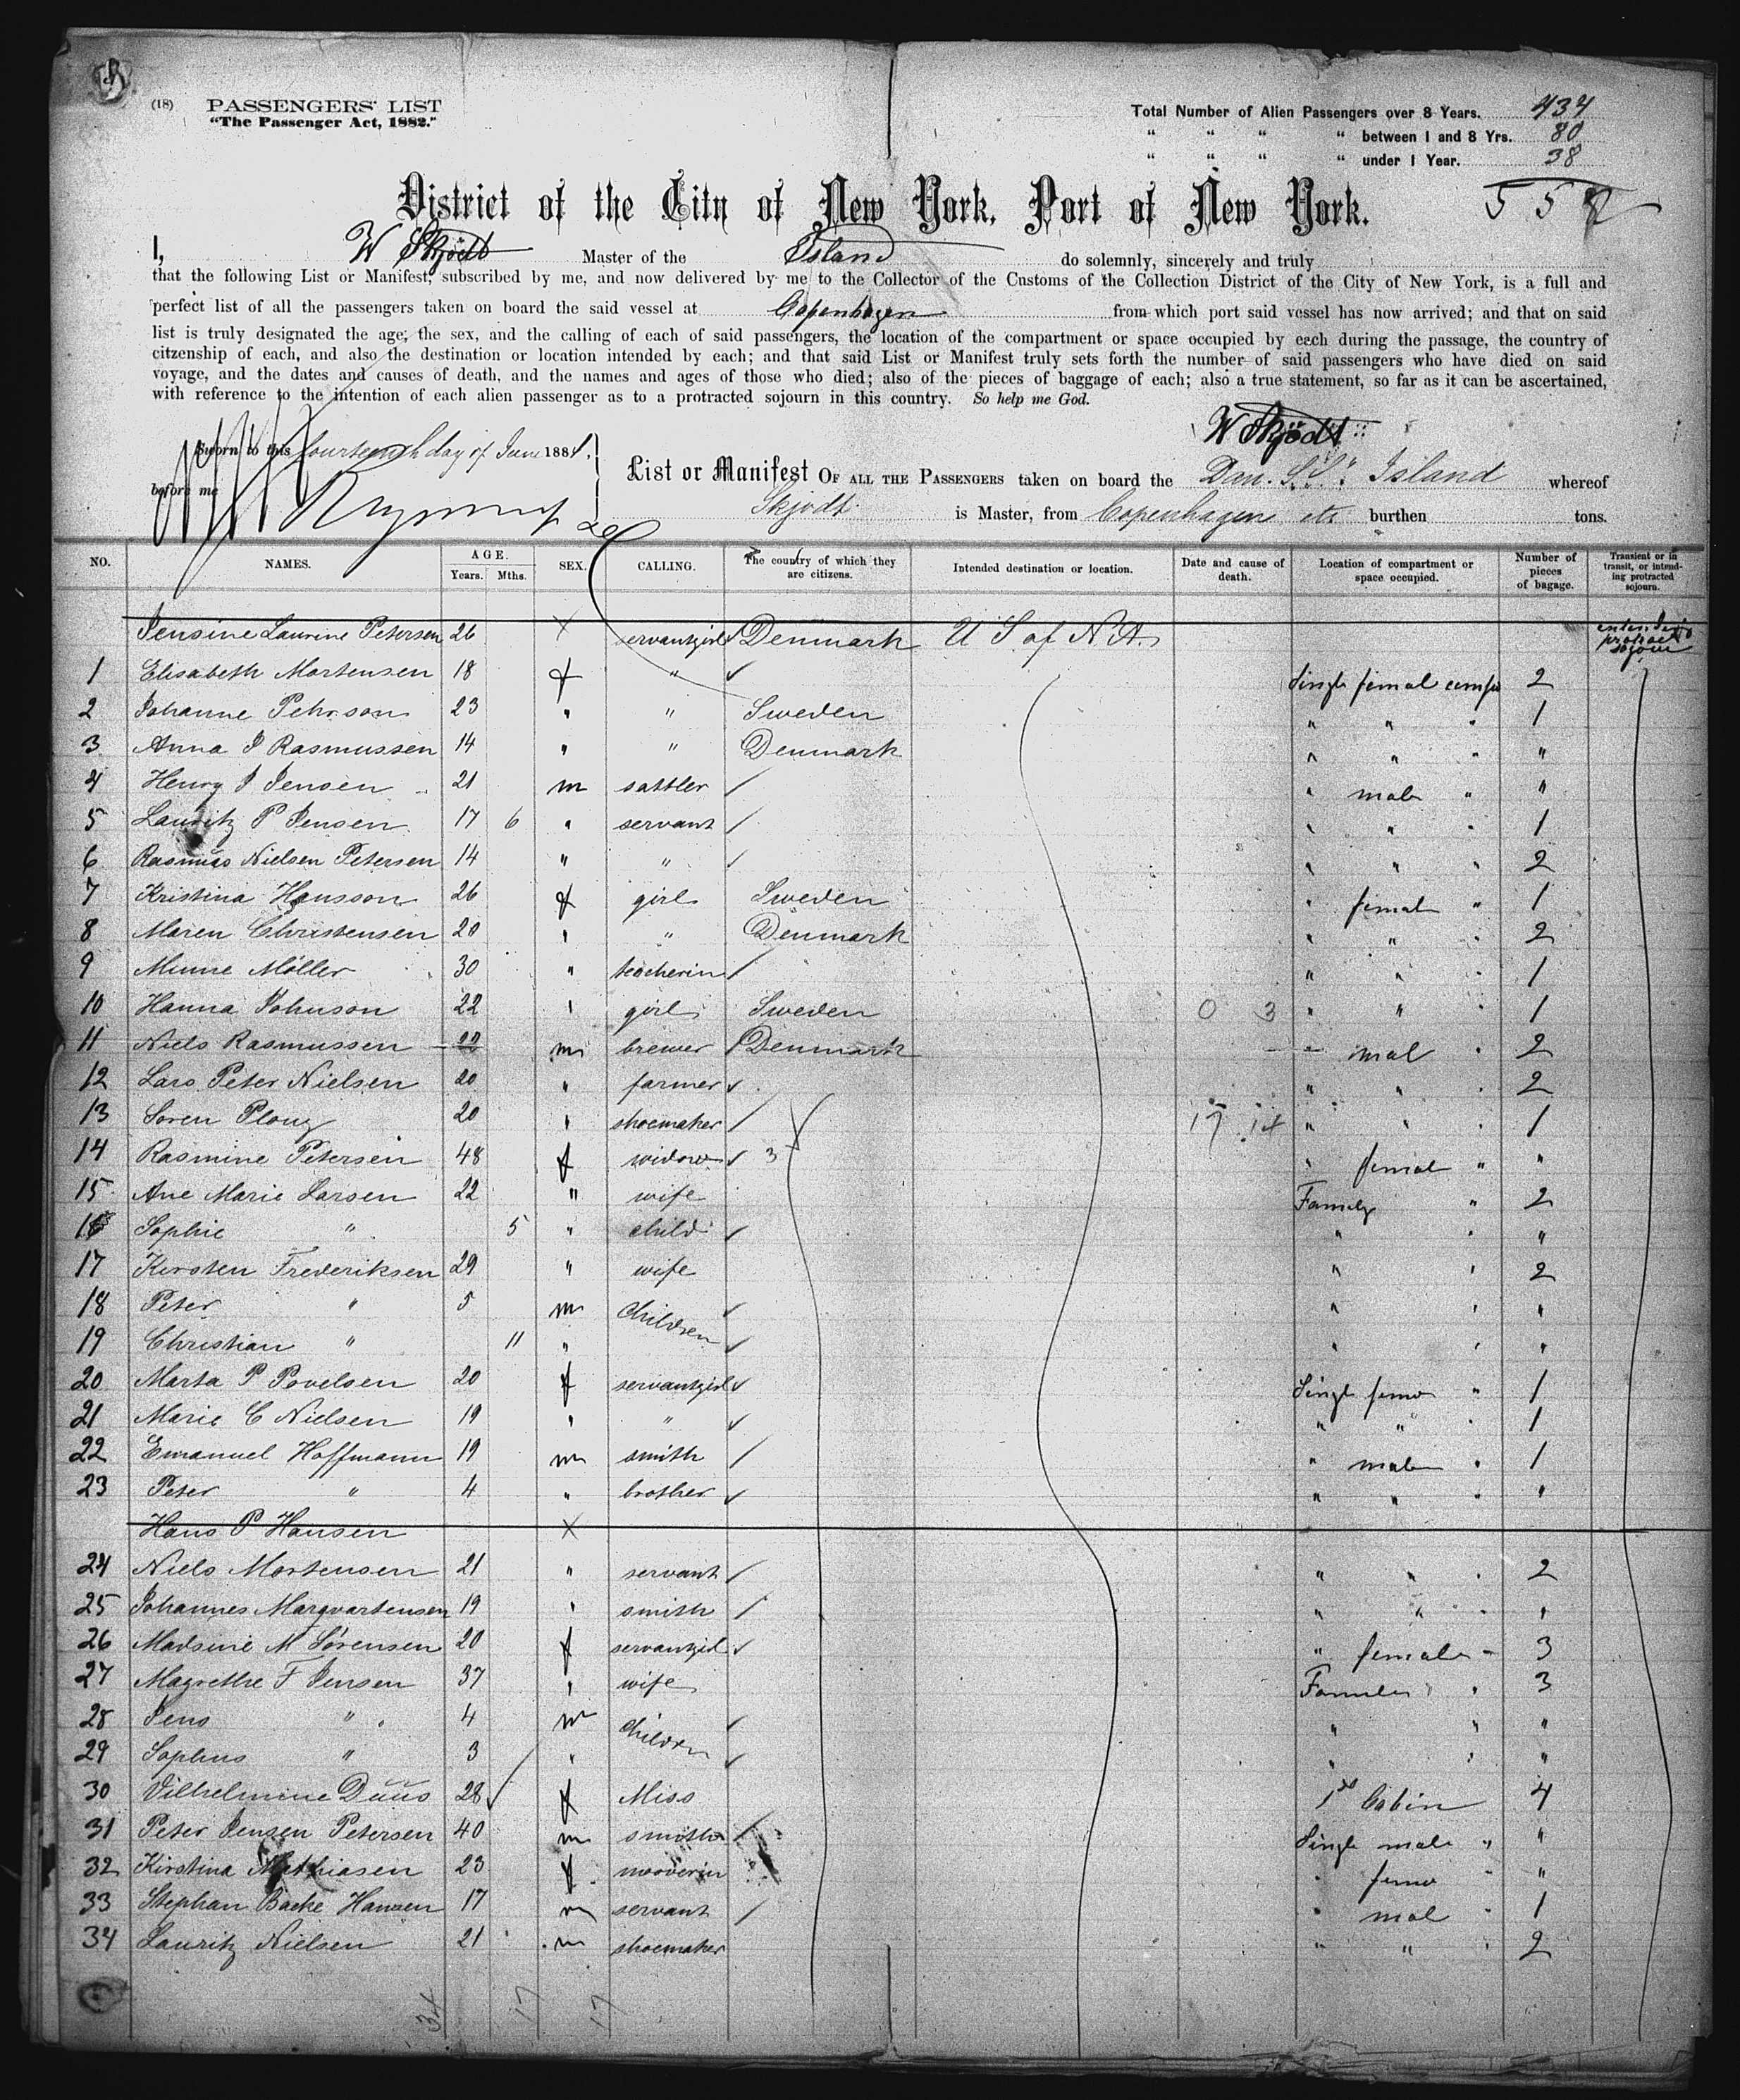 (18) PASSENGERS' LIST
"The Passenger Act, 1882."
Total Number of Alien Passengers over 8 Years. 434
" " " " between 1 and 8 Yrs. 80
" " " " under 1 Year. 38
552
District of the City of New York, Port of New York.
I, W Skjödt Master of the Island do solemnly, sincerely and truly
that the following List or Manifest, subscribed by me, and now delivered by me to the Collector of the Customs of the Collection District of the City of New York, is a full and
perfect list of all the passengers taken on board the said vessel at Copenhagen from which port said vessel has now arrived; and that on said
list is truly designated the age, the sex, and the calling of each of said passengers, the location of the compartment or space occupied by each during the passage, the country of
citzenship of each, and also the destination or location intended by each; and that said List or Manifest truly sets forth the number of said passengers who have died on said
voyage, and the dates and causes of death, and the names and ages of those who died; also of the pieces of baggage of each; also a true statement, so far as it can be ascertained,
with reference to the intention of each alien passenger as to a protracted sojourn in this country. So help me God.
W Skjödt
Sworn to this fourteenth day of June 1884,
before me
List or Manifest OF ALL THE PASSENGERS taken on board the Dan. S.S. Island whereof
Skjodt is Master, from Copenhagen etc burthen tons.
NO. NAMES. AGE. Years. Mths. SEX. CALLING. The country of which they are citizens. Intended destination or location. Date and cause of death. Location of compartment or space occupied. Number of pieces of bagage. Transient or in transit, or intending protracted sojourn.
Jensine Laurine Petersen 26 X servantgirl Denmark U S of N.A.
1 Elisabeth Mortensen 18 f " Single femal 2
2 Johanne Pehrson 23 " " Sweden " " " 1
3 Anna J Rasmussen 14 " " Denmark " " " "
4 Henry J Jensen 21 m sattler " male " "
5 Lauritz P Jensen 17 6 " servant " " " 1
6 Rasmus Nielsen Petersen 14 " " " " " 2
7 Kristina Hansson 26 f girl Sweden " femal " 1
8 Maren Christensen 20 " " Denmark " " " 2
9 Minne Möller 30 " teacherin " " " 1
10 Hanna Johnson 22 " girl Sweden 0 3 " " " 1
11 Niels Rasmussen 22 m brewer Denmark " mal " 2
12 Lars Peter Nielsen 20 " farmer " " " 2
13 Soren Ploug 20 " shoemaker 17 14 " " " 1
14 Rasmine Petersen 48 f widow 3 " femal " "
15 Ane Marie Larsen 22 " wife Family " 2
16 Sophie " 5 " child " " "
17 Kirsten Frederiksen 29 " wife " " 2
18 Peter " 5 m children " " "
19 Christian " 11 " " " "
20 Marta P Povelsen 20 f servantgirl Single fema " 1
21 Marie C Nielsen 19 " " " " " 1
22 Emanuel Hoffmann 19 m smith " male " 1
23 Peter " 4 " brother " " " "
Hans P Hansen X
24 Niels Mortensen 21 " servant " " " 2
25 Johannes Marqvartensen 19 " smith " " " "
26 Madsine M Sörensen 20 f servantgirl " female " 3
27 Magrethe F Jensen 37 " wife " 3
28 Jens " 4 m children " " "
29 Sophus " 3 " " " "
30 Vilhelmine Duus 28 f Miss 1st Cabin 4
31 Peter Jensen Petersen 40 m smith Single male " "
32 Kirstina Mathiasen 23 f " fema " "
33 Stephan Backe Hansen 17 m servant " mal " 1
34 Lauritz Nielsen 21 m shoemaker " " " 2
34 17 17